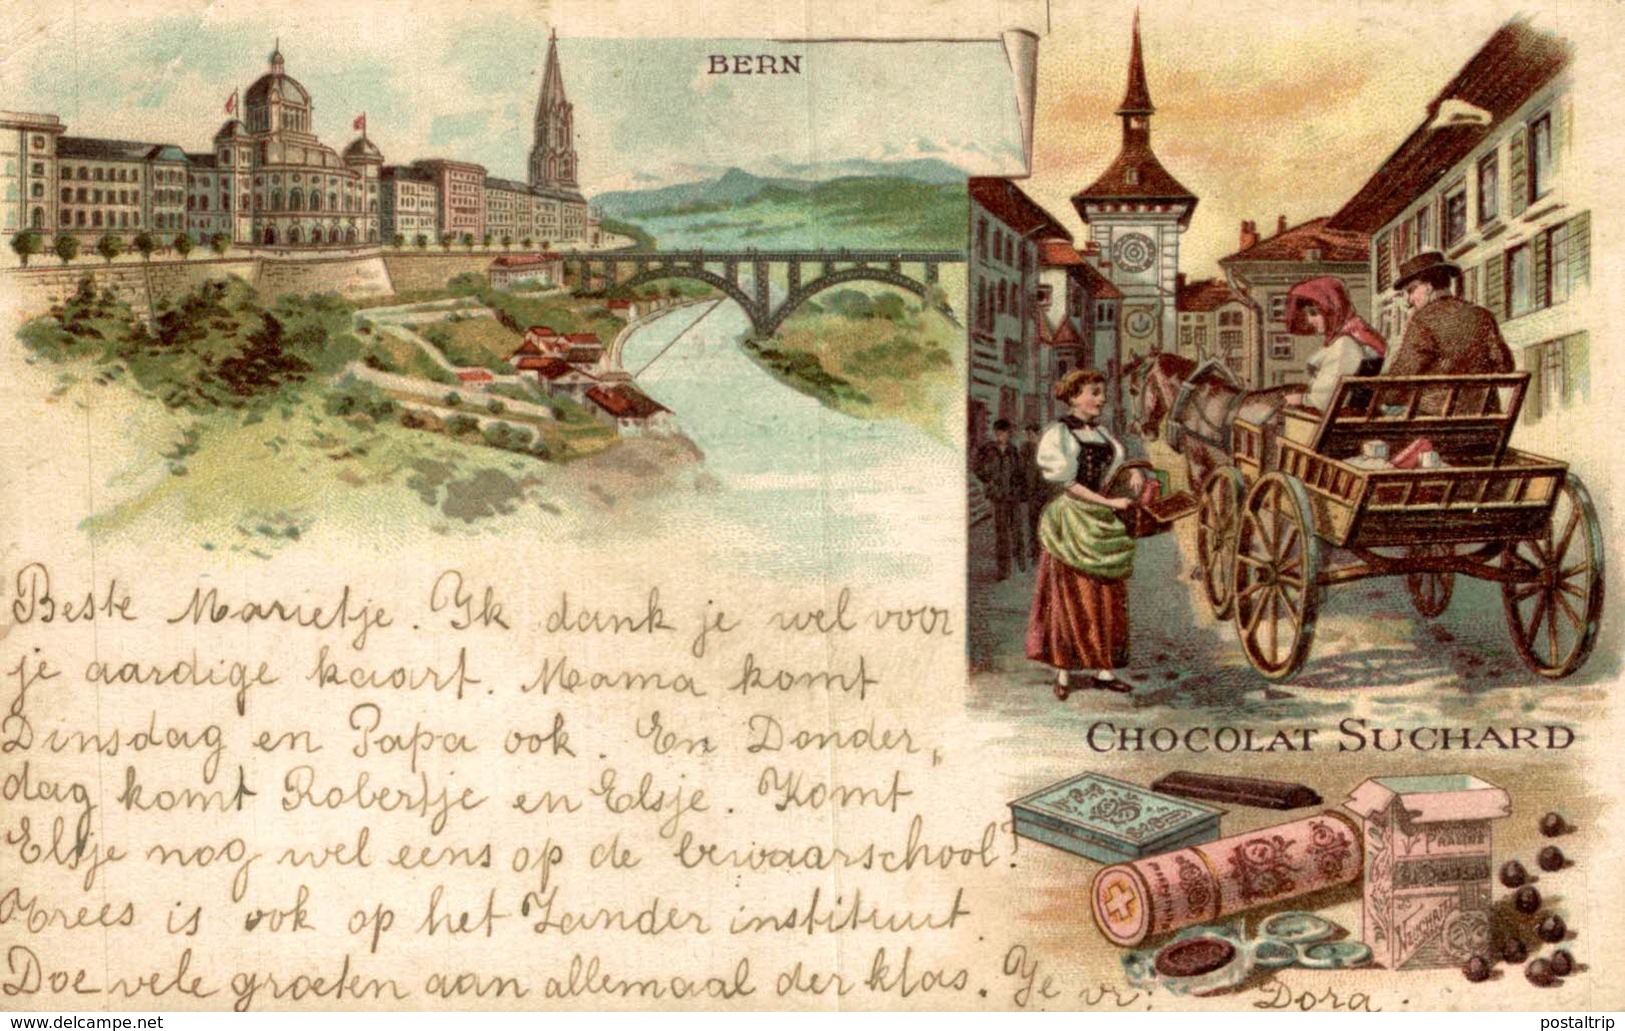 BERN
Beste Marietje. Ik dank je wel voor
je aardige kaart. Mama komt
Dinsdag en Papa ook. En Donder„
dag komt Robertje en Elsje. Komt
Elsje nog wel eens op de bewaarschool?
Trees is ook op het Zander instituut.
Doe vele groeten aan allemaal der klas. Je vr. Dora.
CHOCOLAT SUCHARD
PRALINE
NEUCHATEL
© www.delcampe.net
postaltrip